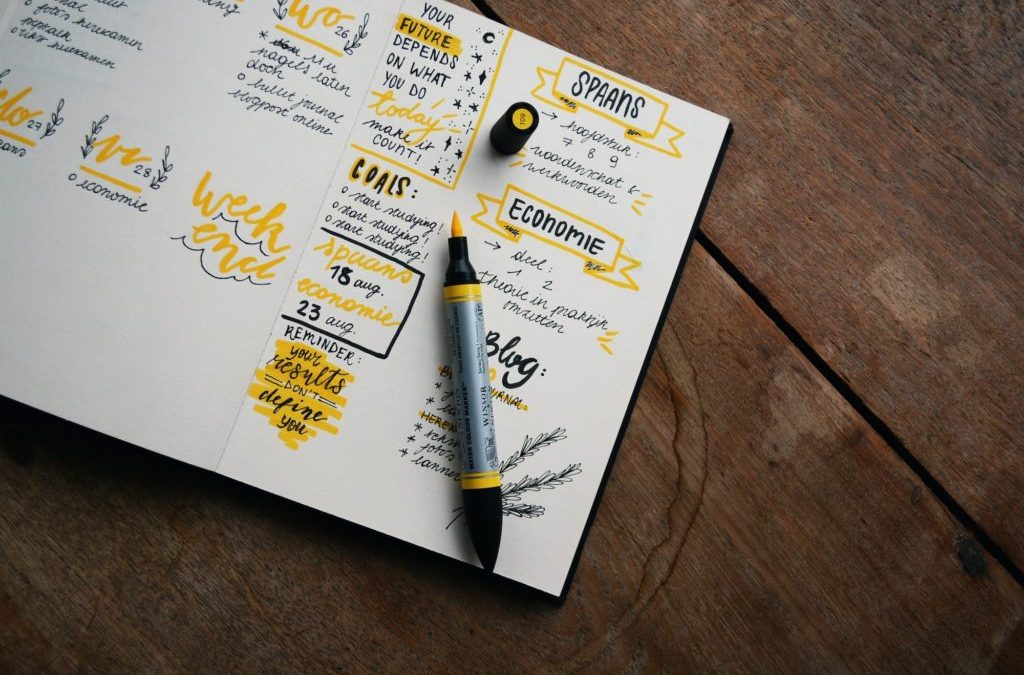 ○ foto's herexamen
herexamen
wo
26
nagels laten
doen
○ bullet journal
blogpost online
do
27
vr
28
○ economie
week
end
YOUR
FUTURE
DEPENDS
ON WHAT
YOU DO
today
make it
COUNT!
GOALS:
○ start studying!
○ start studying!
○ start studying!
spaans
18 aug.
economie
23 aug.
REMINDER:
your
results
DON'T
define
you
SPAANS
→ hoofdstuk:
7 8 9
woordenschat &
werkwoorden
ECONOMIE
→ deel:
1
2
theorie in praktijk
omzetten
Blog:
109
WINSOR
WATER COLOUR MARKER